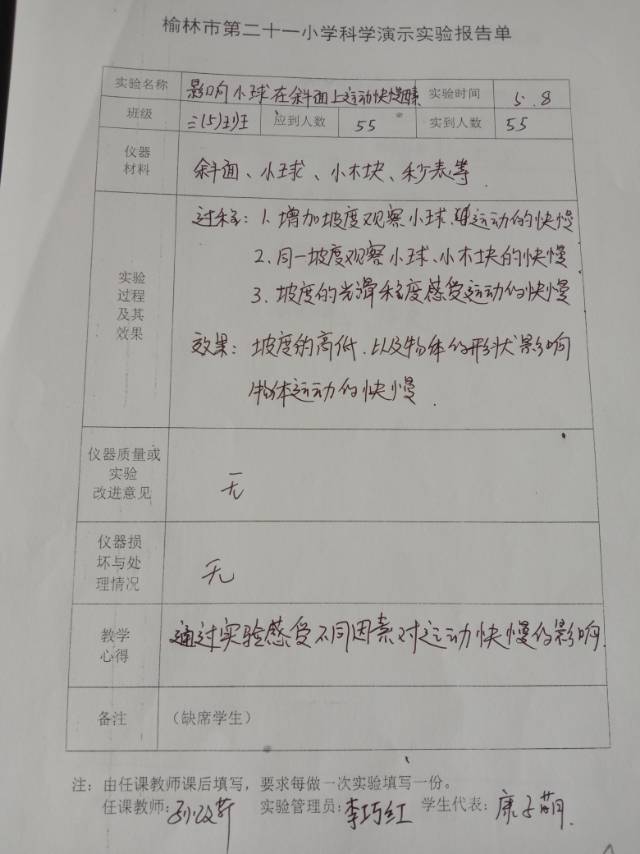 榆林市第二十一小学科学演示实验报告单
实验名称 影响小球在斜面上运动快慢因素 实验时间 5.8
班级 三(5)班 应到人数 55 实到人数 55
仪器
材料
斜面、小球、小木块、秒表等
实验
过程
及其
效果
过程：1.增加坡度观察小球运动的快慢
2.同一坡度观察小球、小木块的快慢
3.坡度的光滑程度感受运动的快慢
效果：坡度的高低.以及物体的形状影响
物体运动的快慢.
仪器质量或
实验
改进意见
无
仪器损
坏与处
理情况
无
教学
心得
通过实验感受不同因素对运动快慢的影响.
备注 （缺席学生）
注：由任课教师课后填写，要求每做一次实验填写一份。
任课教师：孙 实验管理员：李巧红 学生代表：康子萌